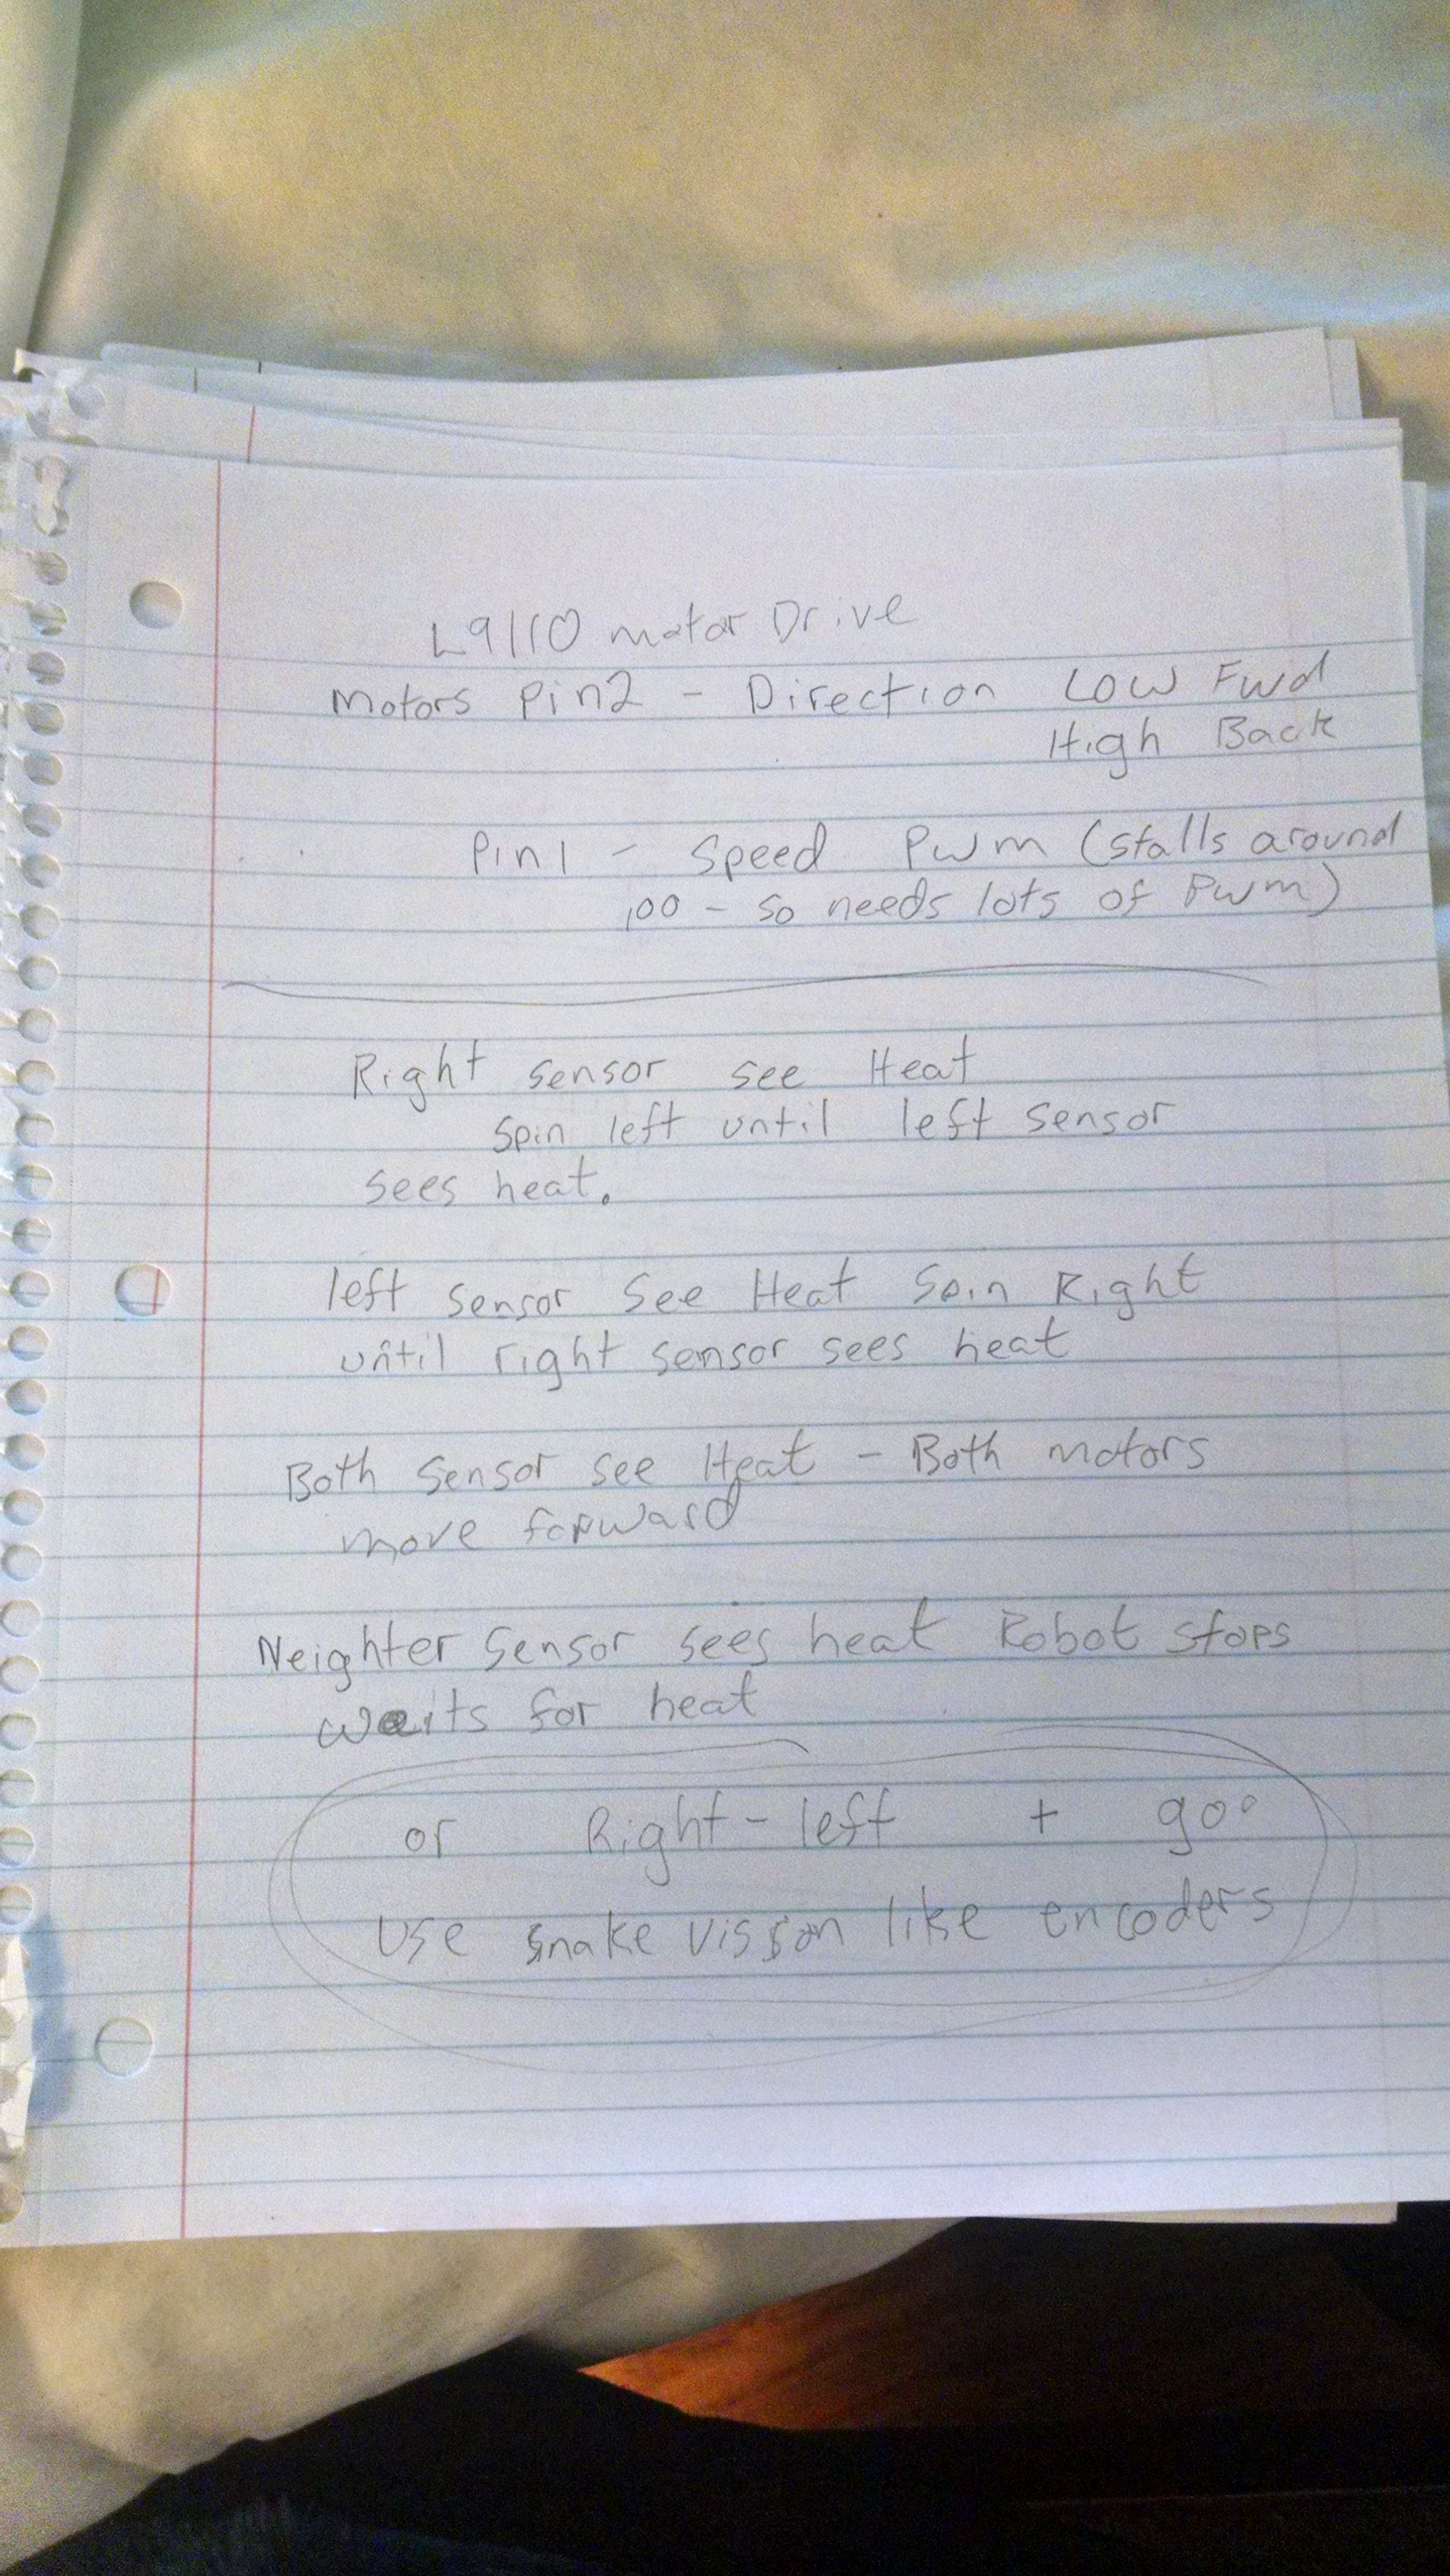 L9110 motor Drive
Motors Pin2 - Direction Low Fwd
High Back
Pin1 - Speed Pwm (stalls around
100 - so needs lots of Pwm)
Right sensor see Heat
Spin left until left sensor
sees heat.
left sensor See Heat Spin Right
until right sensor sees heat
Both Sensor see Heat - Both motors
move forward
Neighter Sensor sees heat Robot stops
waits for heat
or Right - left + 90°
Use snake vission like encoders